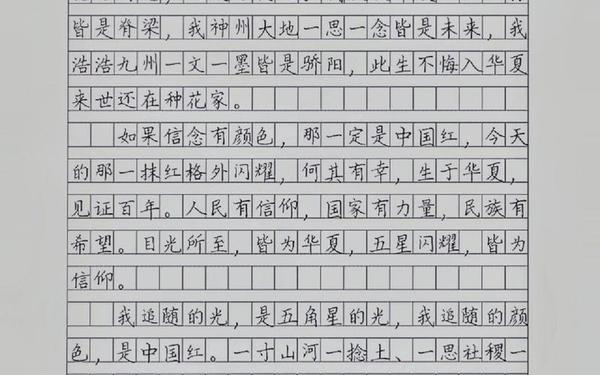 皆是脊梁，我神州大地一思一念皆是未来，我
浩浩九州一文一墨皆是骄阳，此生不悔入华夏
来世还在种花家。
如果信念有颜色，那一定是中国红，今天
的那一抹红格外闪耀，何其有幸，生于华夏，
见证百年。人民有信仰，国家有力量，民族有
希望。目光所至，皆为华夏，五星闪耀，皆为
信仰。
我追随的光，是五角星的光，我追随的颜
色，是中国红。一寸山河一捻土、一思社稷一